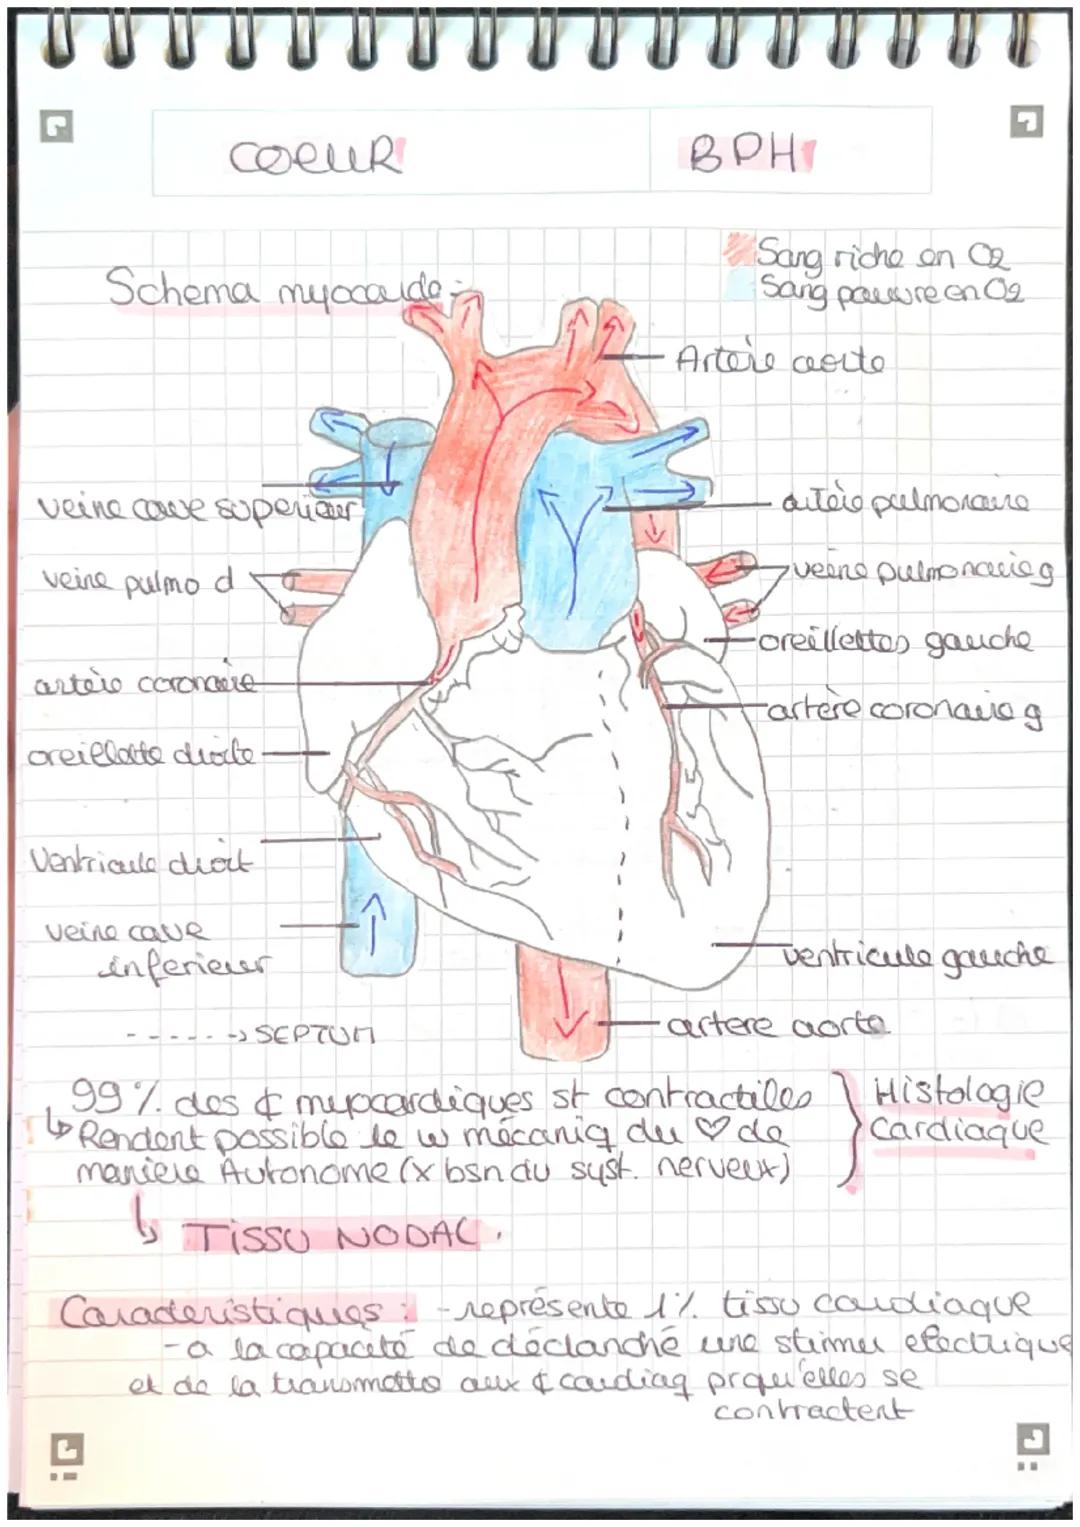 COEUR
BPH
Sang riche en O2
Sang pauvre en O2
Schema myocarde :
Artère aorte
veine cave superieur
artère pulmonaire
veine pulmo d
veine pulmonaire g
oreillettes gauche
artère coronaire
artère coronaire g
oreillette droite
Ventricule droit
veine cave
inferieur
ventricule gauche
------> SEPTUM
artere aorte
99% des ¢ myocardiques st contractiles
↳ Rendent possible le w mécaniq du ♡ de
maniere Autonome (x bsn du syst. nerveux)
Histologie
cardiaque
↳ TISSU NODAL.
Caracteristiques : - représente 1% tissu cardiaque
- a la capacité de déclanché une stimu electrique
et de la transmetto aux ¢ cardiaq prqu'elles se
contractent